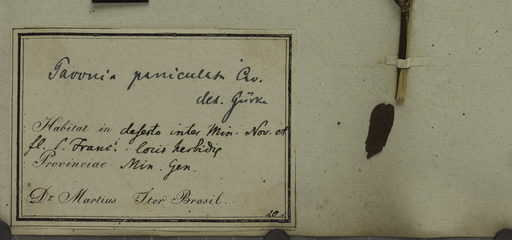 Pavonia paniculata Cav.
det. Gürke
Habitat in deserto inter Min. Nov. et
fl. S. Franc. locis herbidis
Provinciae Min. Gen.
Dr Martius Iter Brasil.